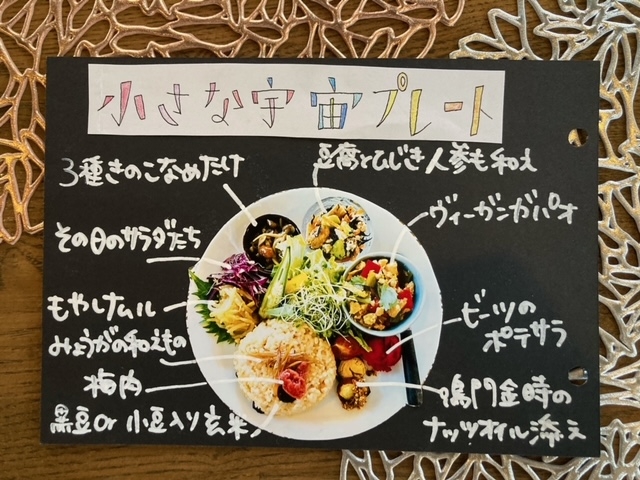 小さな宇宙プレート
3種きのこなめたけ
豆腐とひじき人参も和え
その日のサラダたち
ヴィーガンガパオ
もやしナムル
みょうがの和えもの
梅肉
黒豆or 小豆入り玄米
ビーツの
ポテサラ
鳴門金時の
ナッツオイル添え